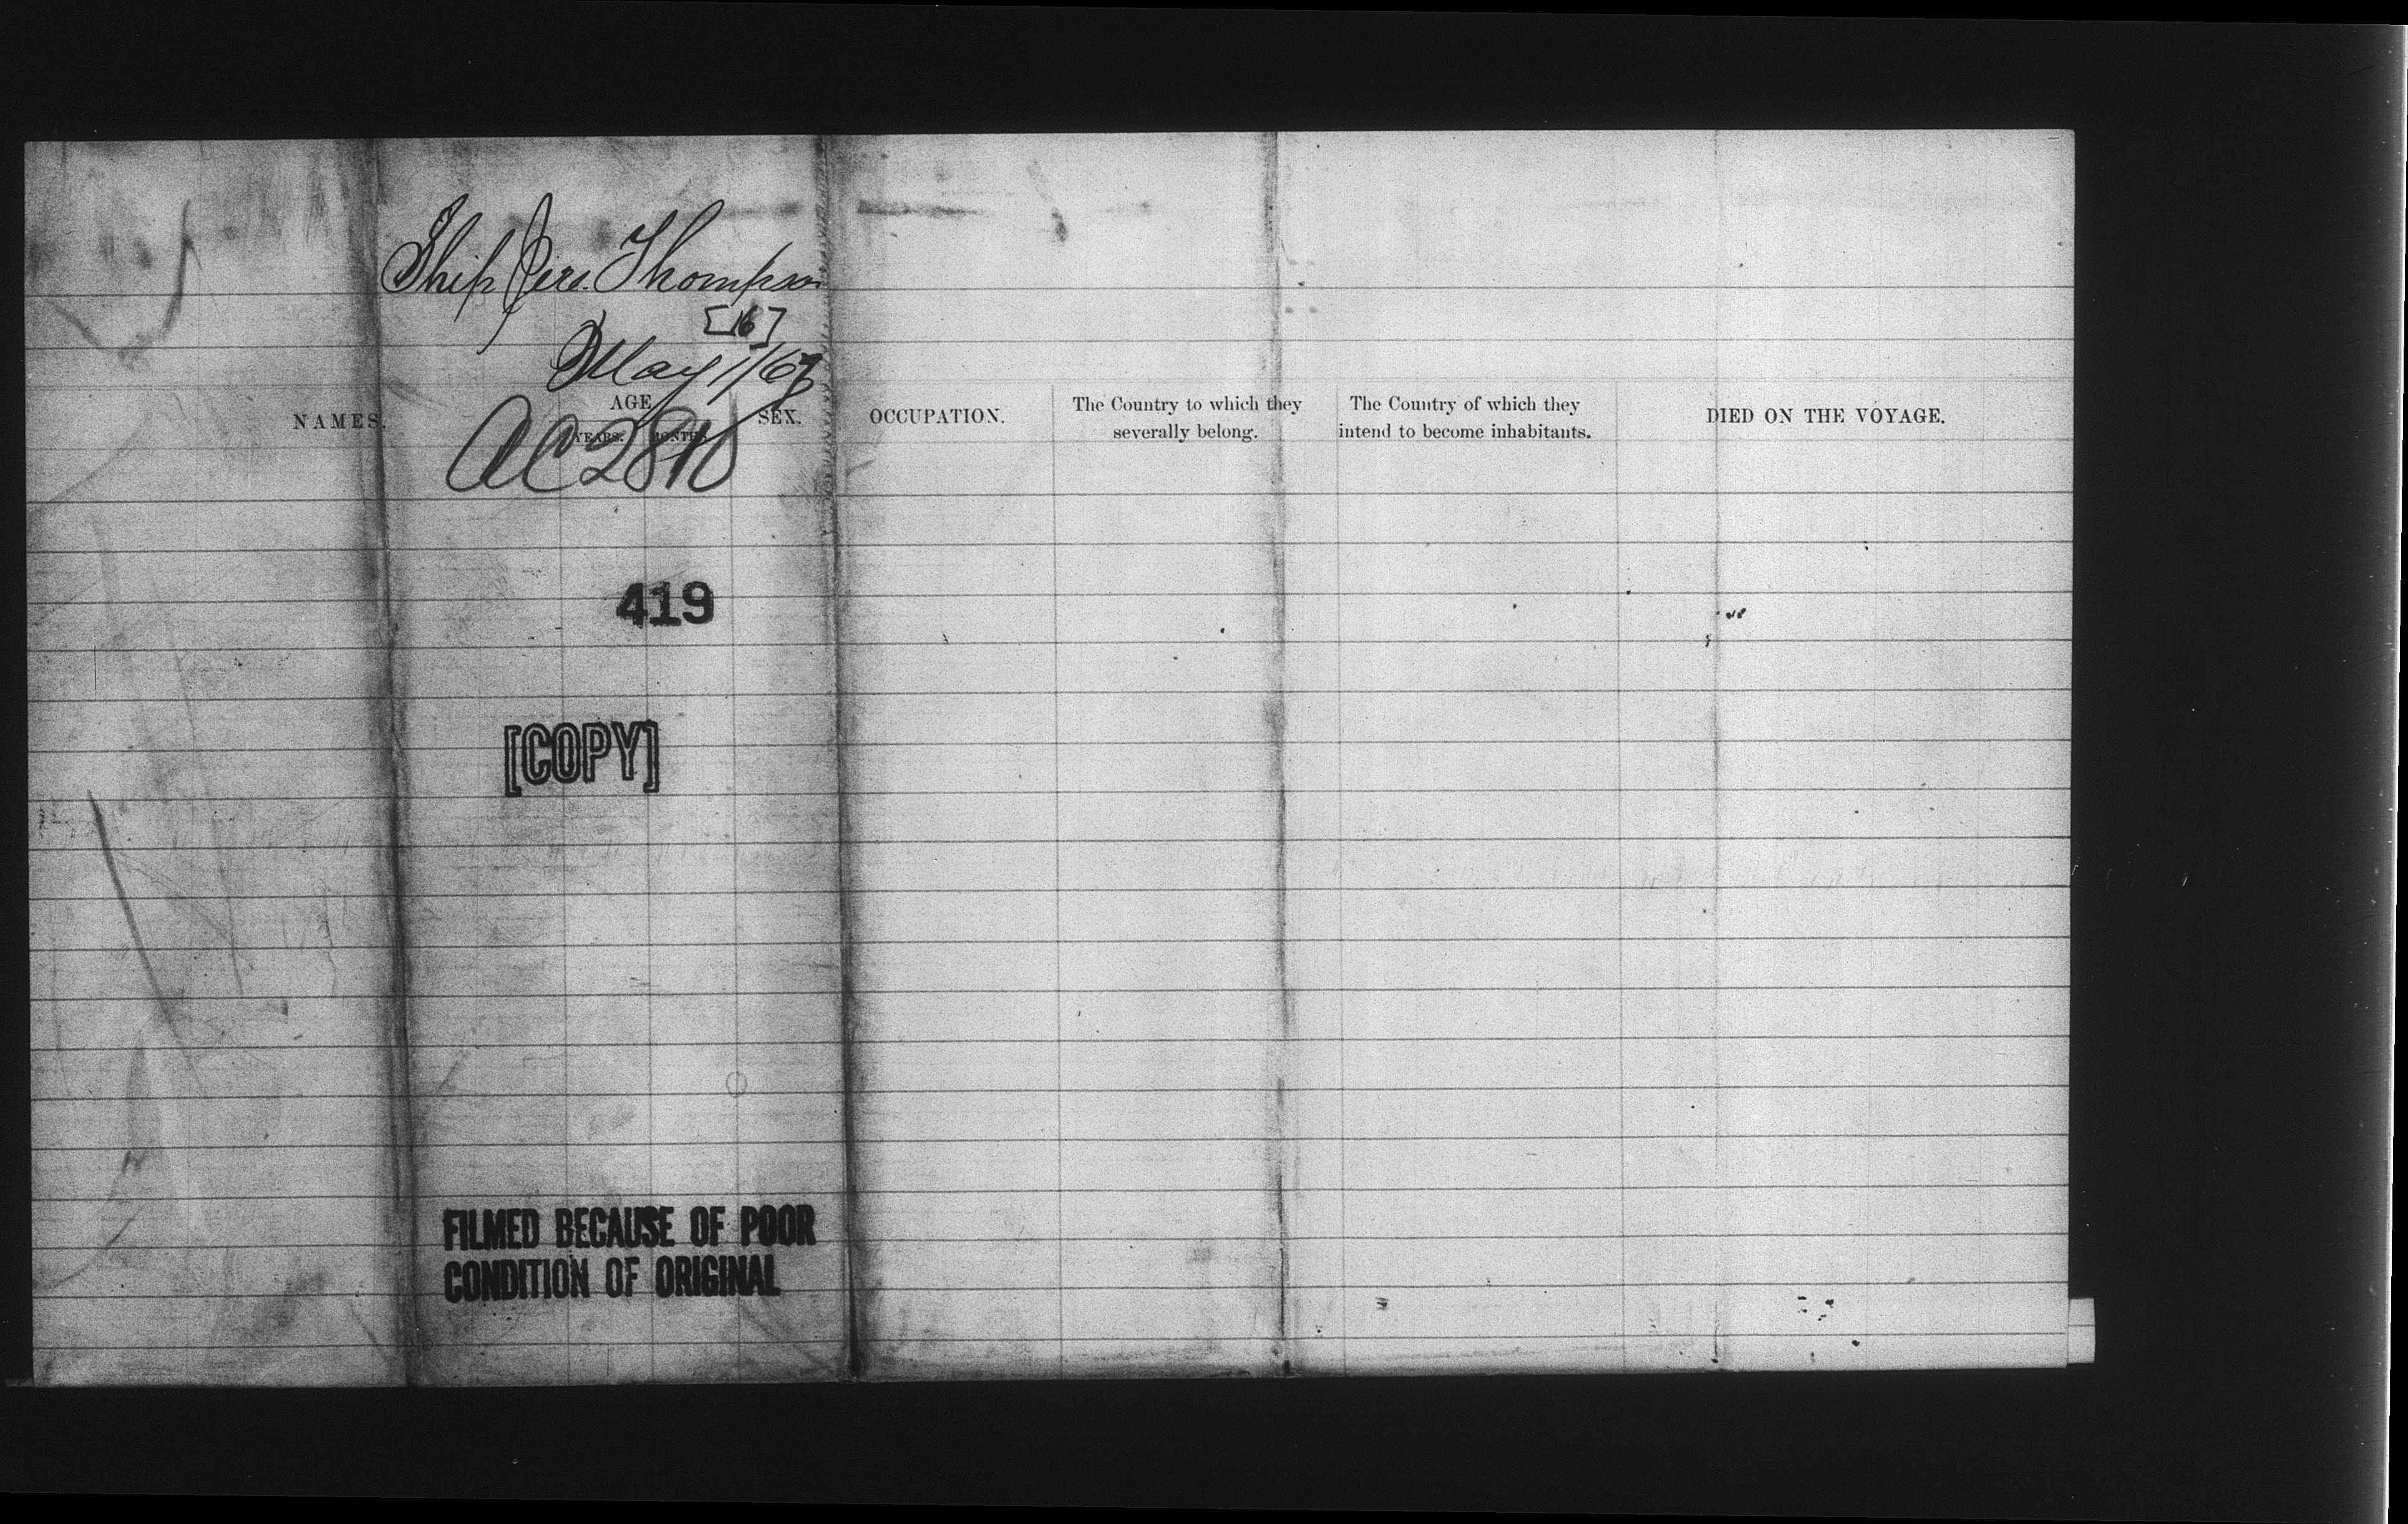 Ship Jere. Thompson
[16]
May 1/67
NAMES.
AGE
YEARS. MONTHS.
SEX.
OCCUPATION.
The Country to which they
severally belong.
The Country of which they
intend to become inhabitants.
DIED ON THE VOYAGE.
419
[COPY]
FILMED BECAUSE OF POOR
CONDITION OF ORIGINAL